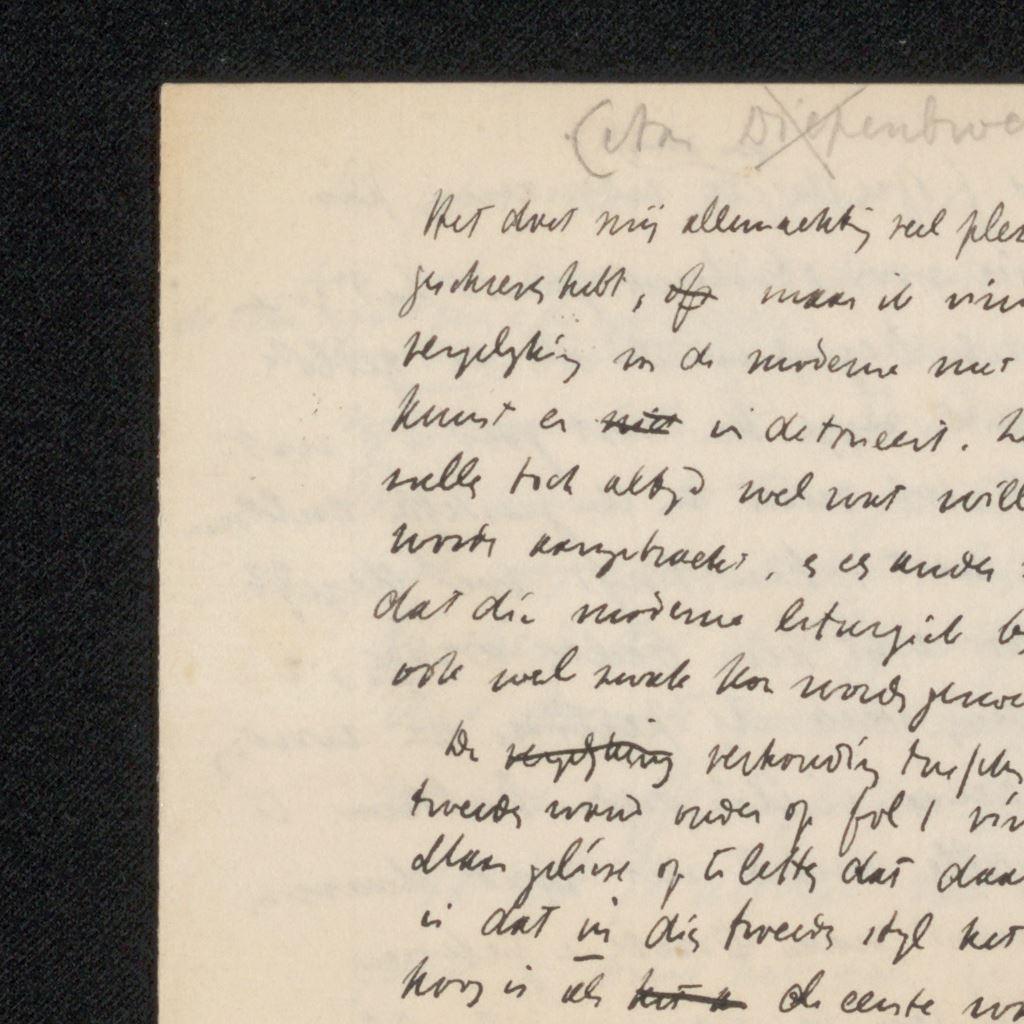 (Aan Diepenbroc
Het doet mij allemachtig veel plez
geschreven hebt, of maar ik vin
vergelyking van de moderne met
kunst er niet in detoneert.
zullen toch altyd wel wat will
worden aangebracht, en en ander
dat die moderne liturgiek
ook wel zwak kan worden genoe
De vergelyking verhouding tusschen
tweede woord onder op fol 1 vin
Maar gelieve op te letten dat daar
is dat in dien tweeden styl het
hoog is als het de eerste wo